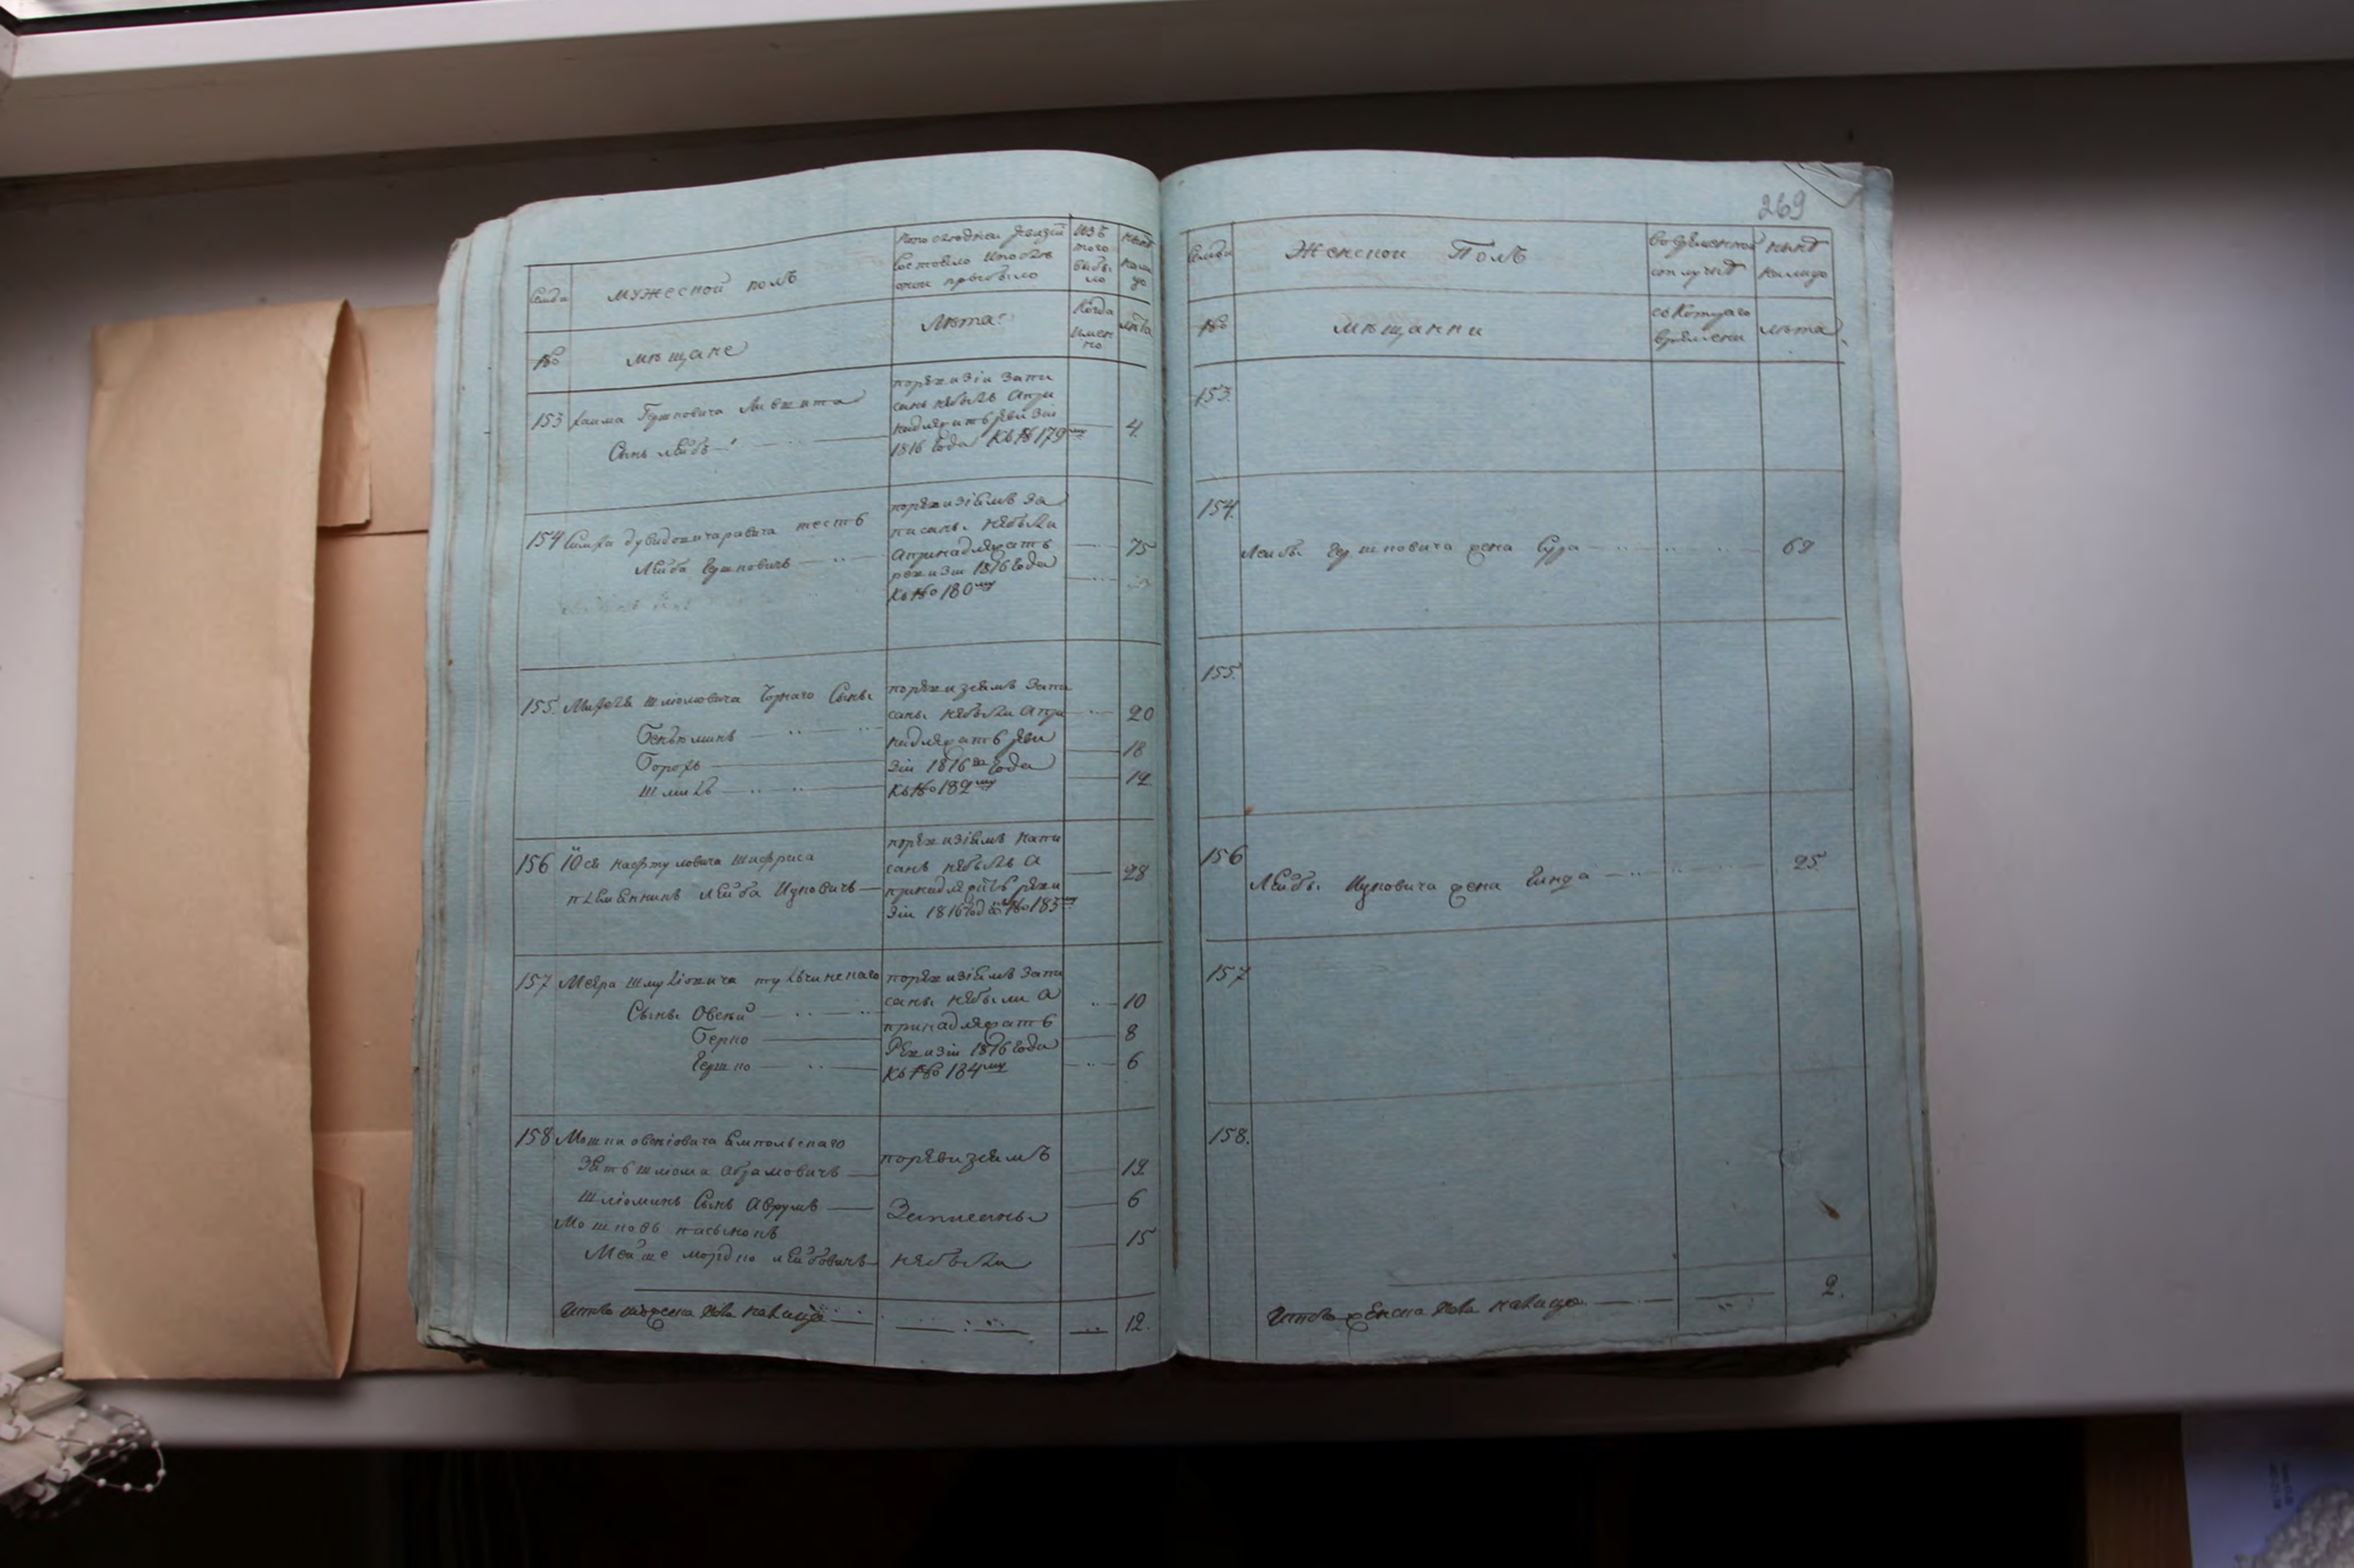 Семьи
мужеской полъ
По последней ревизіи
состояло и после
оной прибыло
Изъ
того
выбы
ло
ныне
на ли
цо
№
мещане
Лета
Когда
имен
но
лета
153 Хаима Гершковича
Сынъ Лейбъ
по ревизіи запи
санъ небылъ а при
надлежитъ реви зіи
1816 года къ № 179му
4
154 Симха Дувидовича равича тесть
Лейба Гершковичъ
по ревизіямъ за
писаны небыли
а принадлежатъ
ревизіи 1816 года
къ № 180му
75
155. Шліомовича Чорнаго Сыны
Беньминъ
Борохъ
Шмиль
по ревизеямъ запи
саны небыли а при
надлежатъ реви
зіи 1816го года
къ № 182му
20
18
12
156 Іося Нафтуловича Шифриса
племенникъ Лейба Ицковичъ
по ревизіямъ напи
санъ небылъ а
принадлежитъ реви
зіи 1816 года № 183му
28
157 Меера Шмуліовича тульчинскаго
Сыны Овсей
Берко
Гершко
по ревизіямъ запи
саны небыли а
принадлежатъ
Ревизіи 1816 года
къ № 184му
10
8
6
158 Мошки Овсіовича Ямпольскаго
Зять Шліома Абрамовичъ
Шліоминъ Сынъ Аврумъ
Мошковъ пасынокъ
Мейше Мордко Лейбовичъ
по ревизеямъ
Записаны
небыли
12
6
15
Итого мужеска пола налицо
12.
269
Семьи
Женской Полъ
во временной
отлучке
ныне
налицо
№
мещанки
съ Котораго
времени
лета
153.
154.
Лейбы Гершковича жена Сура
69
155.
156
Лейбы Ицковича жена Гинда
25
157
158.
Итого женска пола налицо
2.